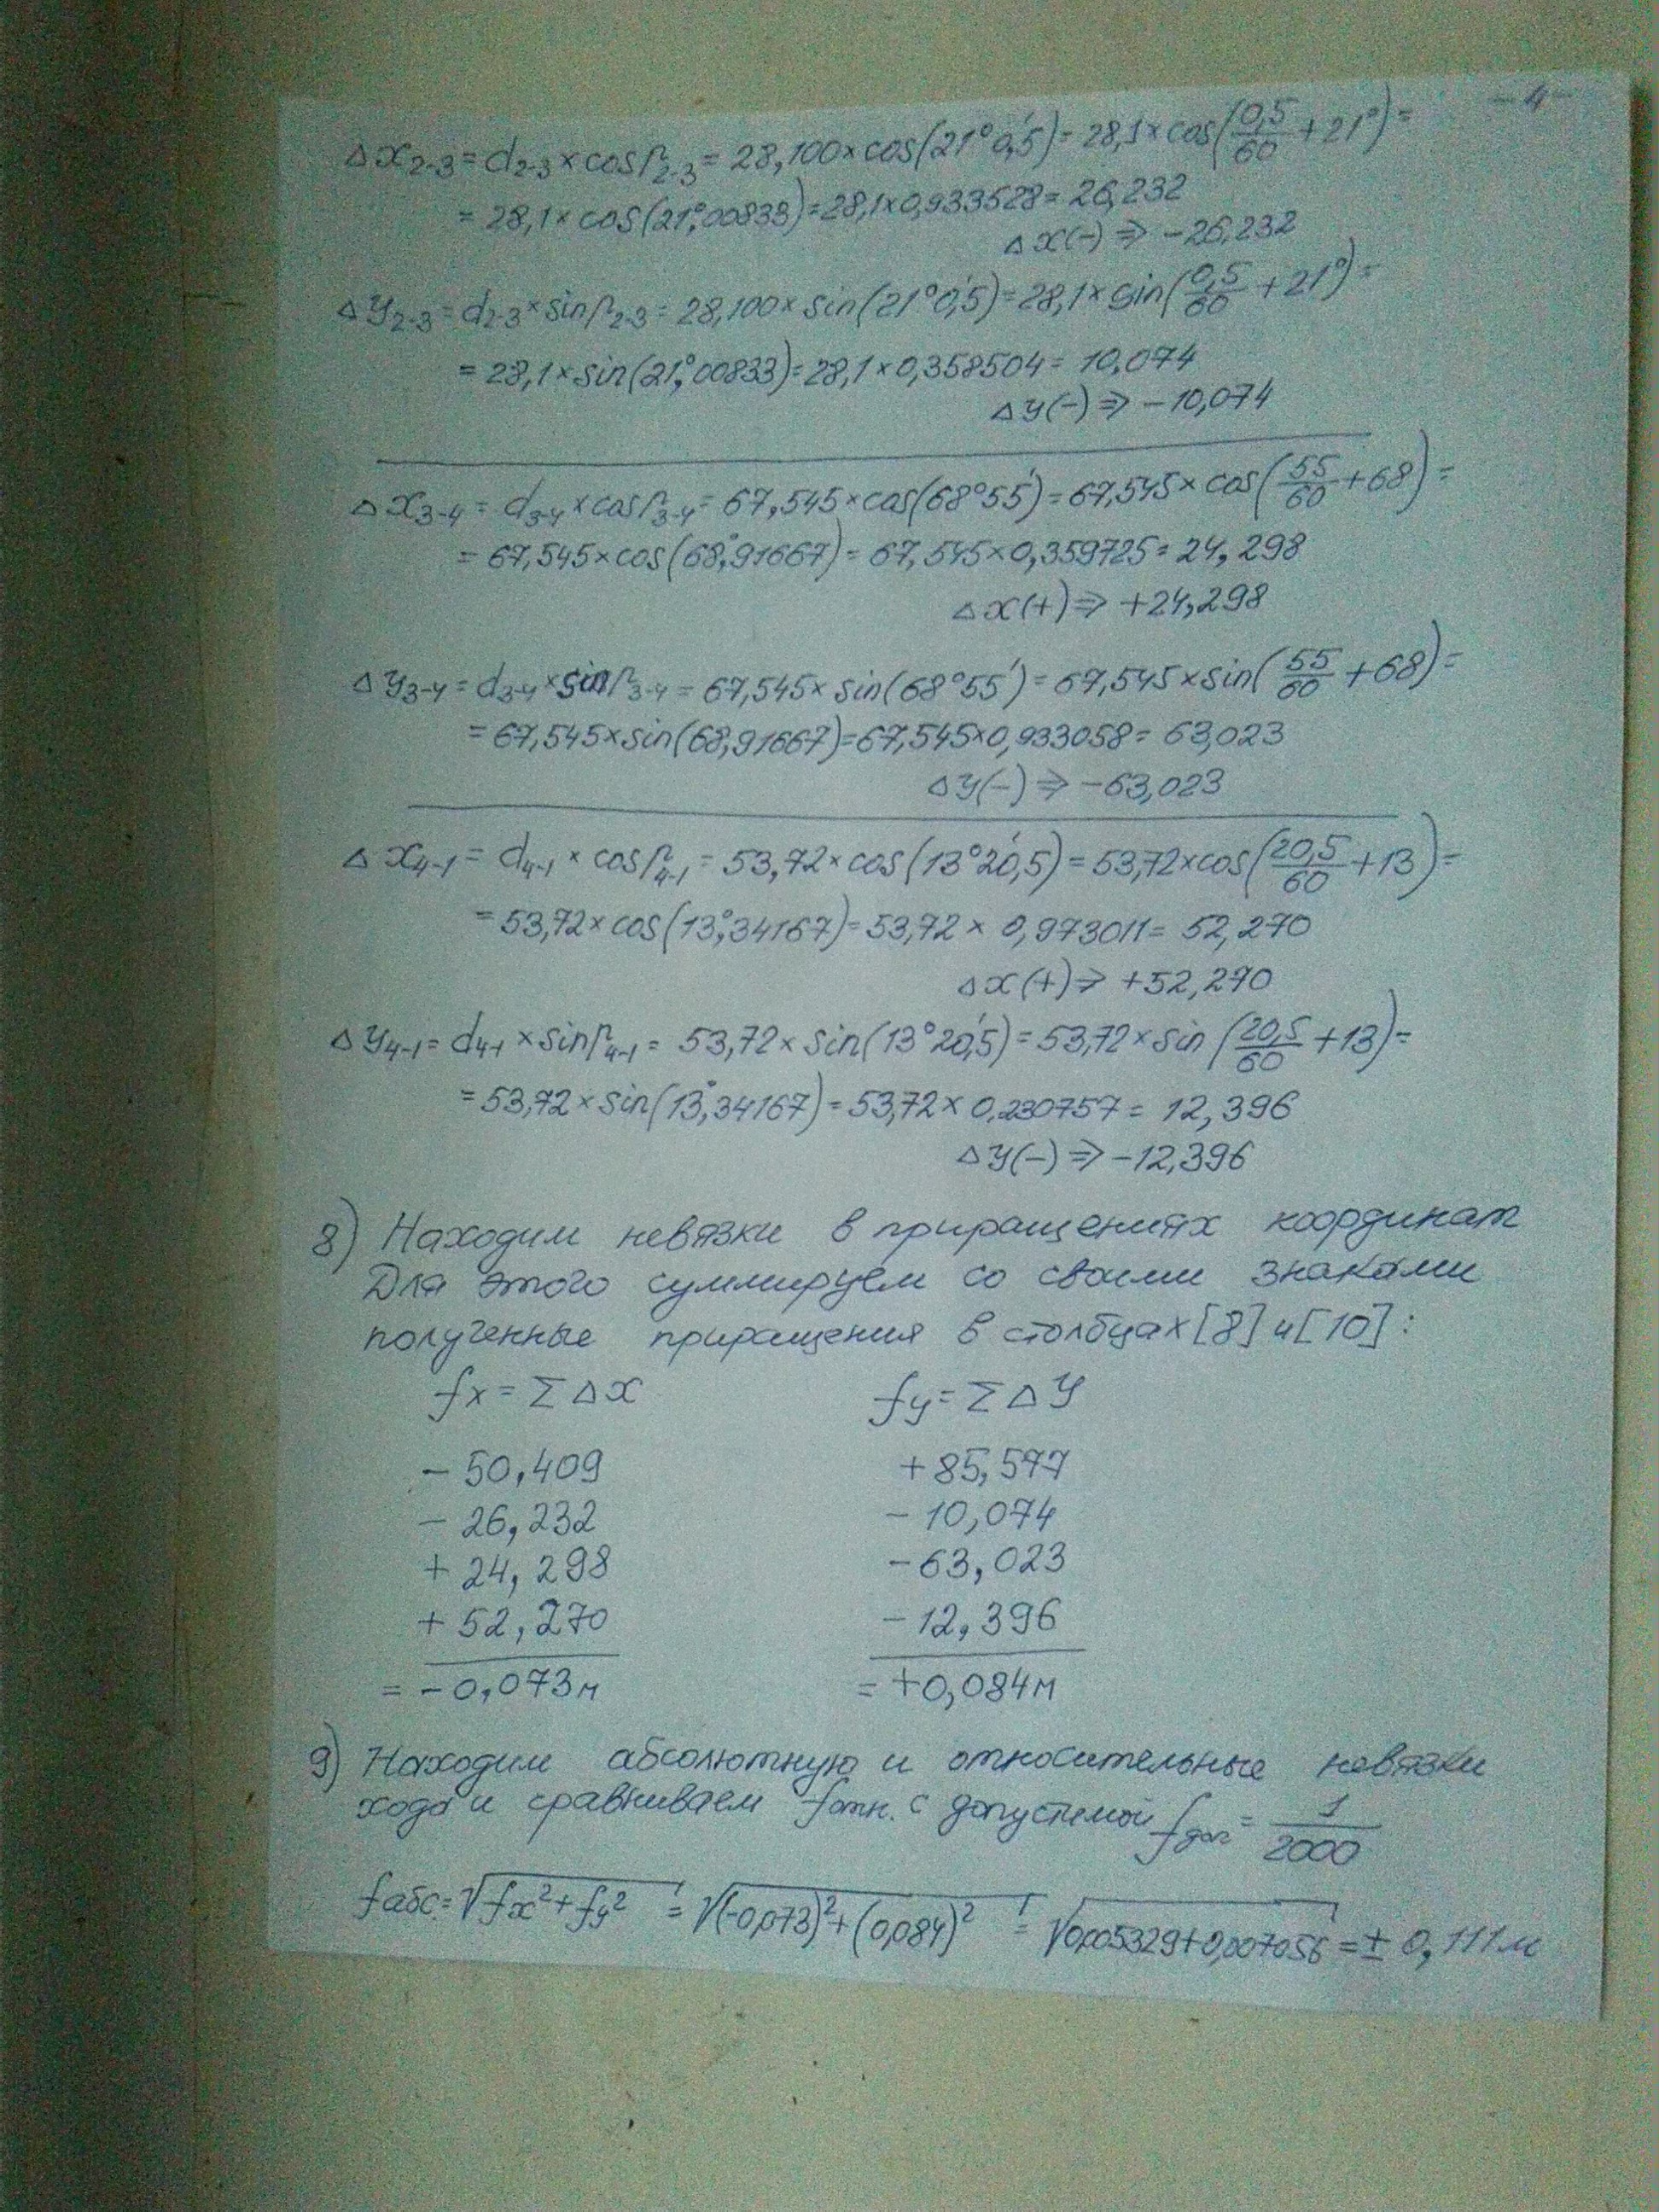 - 4 -
Δx₂₋₃ = d₂₋₃ × cos r₂₋₃ = 28,100 × cos(21°0,5') = 28,1 × cos(0,5/60 + 21°) =
= 28,1 × cos(21°,00833) = 28,1 × 0,933528 = 26,232
Δx(-) ⇒ -26,232
Δy₂₋₃ = d₂₋₃ × sin r₂₋₃ = 28,100 × sin(21°0,5') = 28,1 × sin(0,5/60 + 21°) =
= 28,1 × sin(21°,00833) = 28,1 × 0,358504 = 10,074
Δy(-) ⇒ -10,074
Δx₃₋₄ = d₃₋₄ × cos r₃₋₄ = 67,545 × cos(68°55') = 67,545 × cos(55/60 + 68) =
= 67,545 × cos(68°,91667) = 67,545 × 0,359725 = 24,298
Δx(+) ⇒ +24,298
Δy₃₋₄ = d₃₋₄ × sin r₃₋₄ = 67,545 × sin(68°55') = 67,545 × sin(55/60 + 68) =
= 67,545 × sin(68,91667) = 67,545 × 0,933058 = 63,023
Δy(-) ⇒ -63,023
Δx₄₋₁ = d₄₋₁ × cos r₄₋₁ = 53,72 × cos(13°20,5') = 53,72 × cos(20,5/60 + 13) =
= 53,72 × cos(13°,34167) = 53,72 × 0,973011 = 52,270
Δx(+) ⇒ +52,270
Δy₄₋₁ = d₄₋₁ × sin r₄₋₁ = 53,72 × sin(13°20,5') = 53,72 × sin(20,5/60 + 13) =
= 53,72 × sin(13°,34167) = 53,72 × 0,230757 = 12,396
Δy(-) ⇒ -12,396
8) Находим невязки в приращениях координат
Для этого суммируем со своими знаками
полученные приращения в столбцах [8] и [10]:
fx = Σ Δx fy = Σ Δy
- 50,409 + 85,577
- 26,232 - 10,074
+ 24,298 - 63,023
+ 52,270 - 12,396
= -0,073м = +0,084м
9) Находим абсолютную и относительные невязки
хода и сравниваем fотн. с допустимой fдоп = 1/2000
fабс = √(fx² + fy²) = √((-0,073)² + (0,084)²) = √(0,005329 + 0,007056) = ± 0,111м